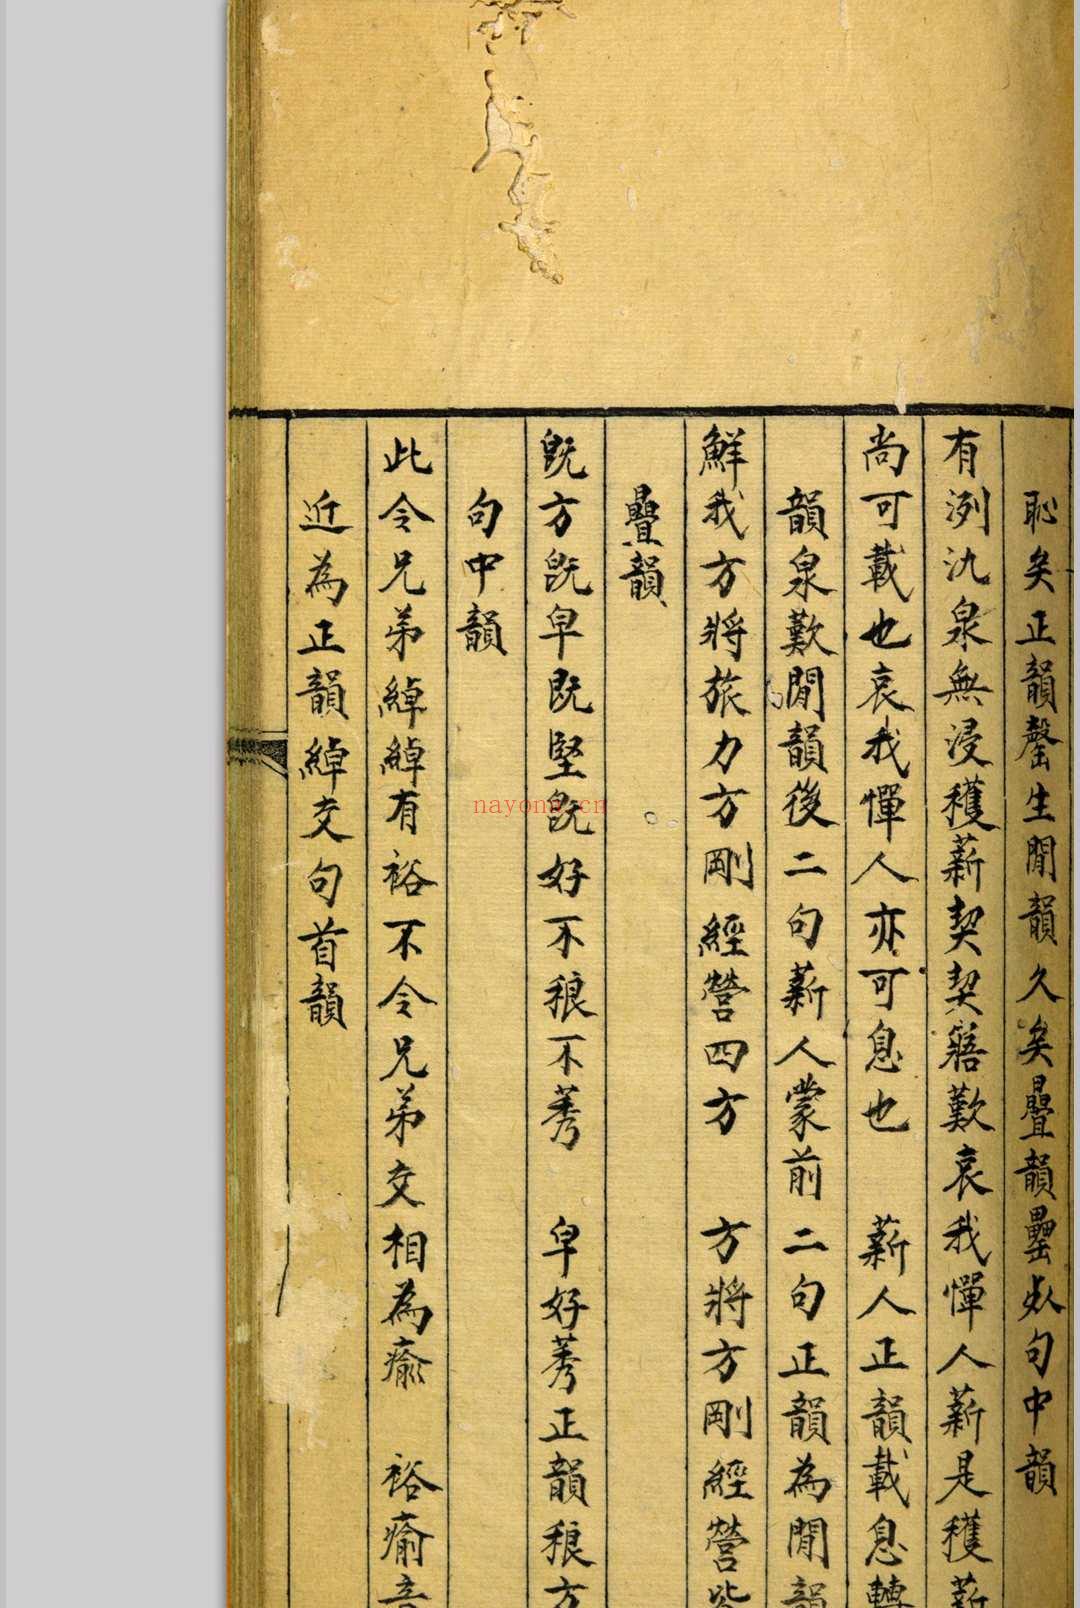 恥矣正韻罄生閒韻久矣疊韻罍央句中韻
有洌氿泉無浸穫薪契契寤歎哀我憚人薪是穫薪
尚可載也哀我憚人亦可息也　薪人正韻載息轉
韻泉歎閒韻後二句薪人蒙前二句正韻為閒韻
鮮我方將旅力方剛經營四方　方將方剛經營皆
疊韻
旣方旣皁既堅旣好不稂不莠　皁好莠正韻稂方
句中韻
此令兄弟綽綽有裕不令兄弟交相為瘉　裕瘉音
近為正韻綽交句首韻
nayona.cn